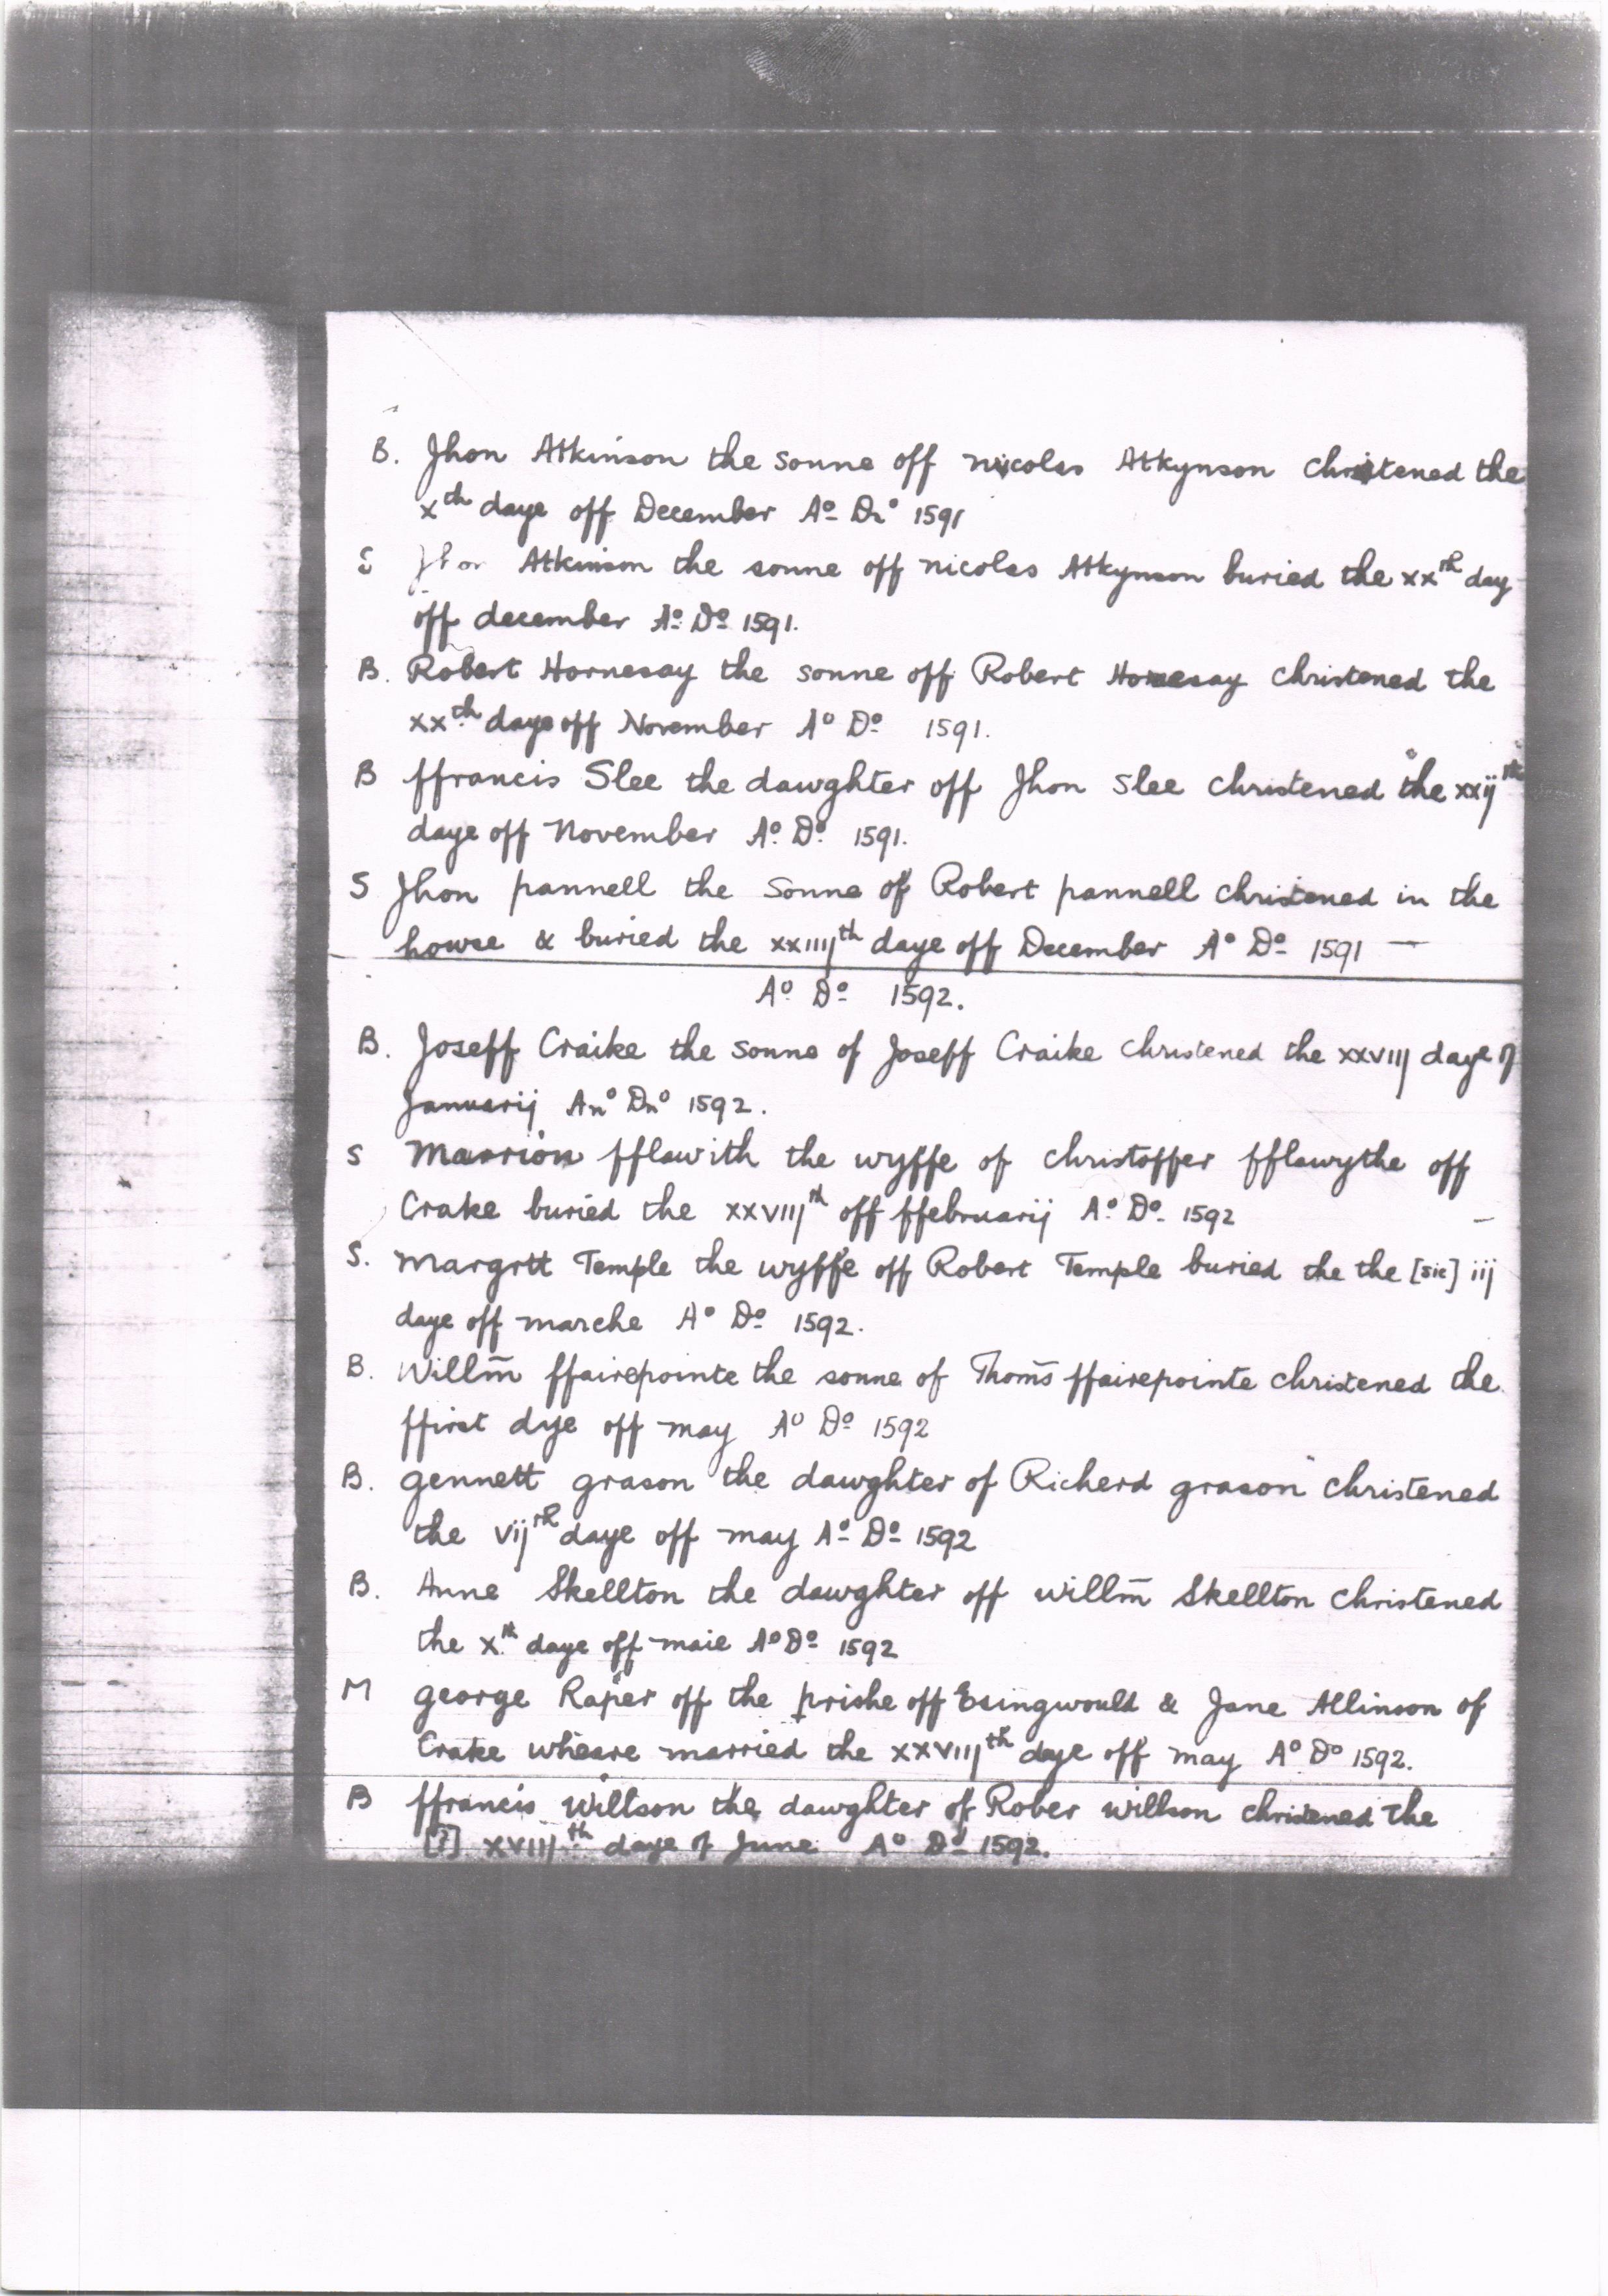 B. Jhon Atkinson the sonne off nicolas Atkynson christened the
xth daye off December Ao Dno 1591
S Jhon Atkinson the sonne off nicolas Atkynson buried the xxth day
off december Ao Do 1591.
B. Robert Hornesay the sonne off Robert Hornesay christened the
xxth daye off November Ao Do 1591.
B ffrancis Slee the dawghter off Jhon Slee christened the xxijth
daye off november Ao Do 1591.
S Jhon pannell the sonne of Robert pannell christened in the
howse & buried the xxiiijth daye off December Ao Do 1591 —
Ao Do 1592.
B. Joseff Craike the sonne of Joseff Craike christened the xxviij daye of
Januarij Ano Dno 1592.
S Marrion fflawith the wyffe of christoffer fflawythe off
Crake buried the xxviijth off ffebruarij Ao Do 1592 —
S. Margrtt Temple the wyffe off Robert Temple buried the the [sic] iij
daye off marche Ao Do 1592.
B. Willm̄ ffairepointe the sonne of Thom̄s ffairepointe christened the
ffirst dye off may Ao Do 1592
B. gennett grason the dawghter of Richerd grason christened
the vijth daye off may Ao Do 1592
B. Anne Skellton the dawghter off willm̄ Skellton christened
the xth daye off maie Ao Do 1592
M george Raper off the prishe off Esingwould & Jane Allinson of
Crake wheare married the xxviijth daye off may Ao Do 1592.
B ffrancis Willson the dawghter of Rober willson christened the
[?] xviijth daye of June Ao Do 1592.